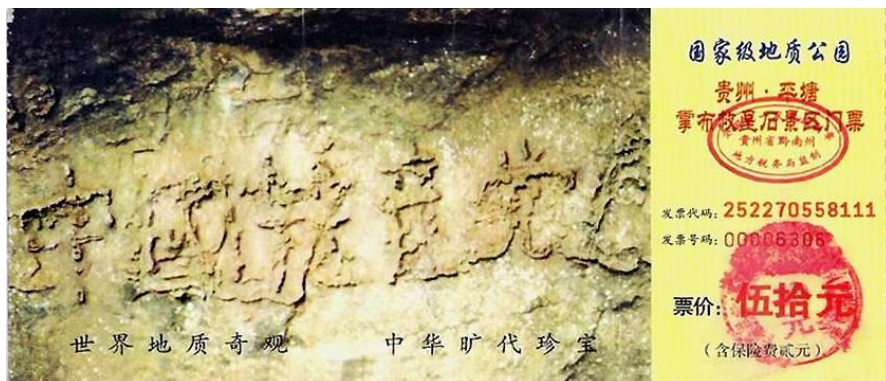 中國共产党
世界地质奇观 中华旷代珍宝
国家级地质公园
贵州·平塘
掌布救星石景区门票
貴州省黔南州
地方税务局监制
发票代码: 252270558111
发票号码: 00006306
票价: 伍拾元
(含保险费贰元)